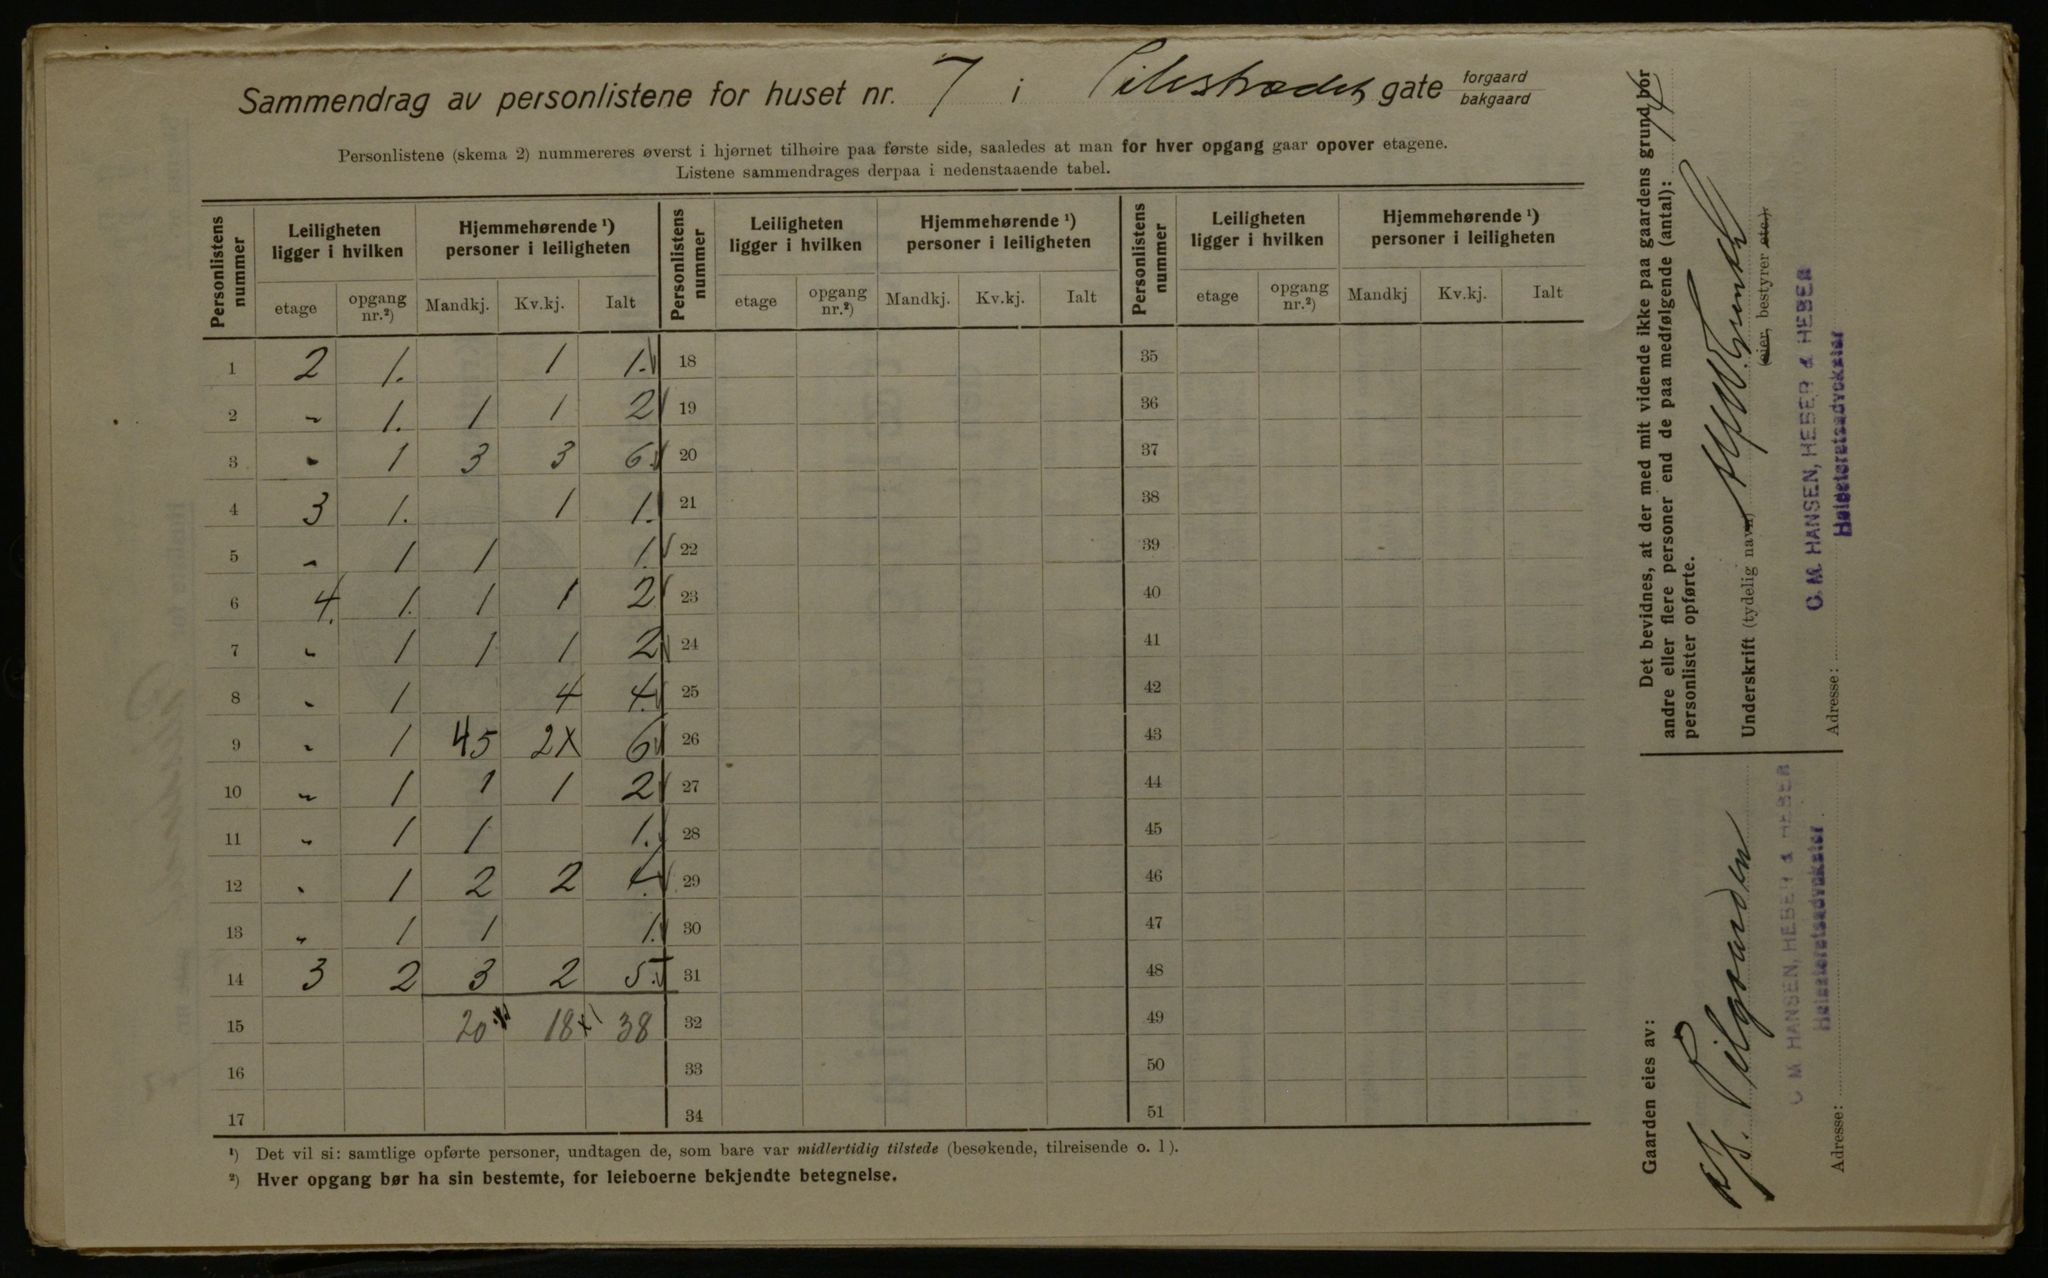 Sammendrag av personlistene for huset nr. 7 i Pilestrædet gate forgaard bakgaard
Personlistene (skema 2) nummereres øverst i hjørnet tilhøire paa første side, saaledes at man for hver opgang gaar opover etagene.
Listene sammendrages derpaa i nedenstaaende tabel.
Personlistens nummer | Leiligheten ligger i hvilken | Hjemmehørende ¹) personer i leiligheten | Personlistens nummer | Leiligheten ligger i hvilken | Hjemmehørende ¹) personer i leiligheten | Personlistens nummer | Leiligheten ligger i hvilken | Hjemmehørende ¹) personer i leiligheten
etage | opgang nr.²) | Mandkj. | Kv.kj. | Ialt | etage | opgang nr.²) | Mandkj. | Kv.kj. | Ialt | etage | opgang nr.²) | Mandkj | Kv.kj. | Ialt
1 | 2 | 1. | | 1 | 1. | 18 | 35
2 | " | 1. | 1 | 1 | 2 | 19 | 36
3 | " | 1 | 3 | 3 | 6. | 20 | 37
4 | 3 | 1. | | 1 | 1. | 21 | 38
5 | " | 1 | 1 | | 1. | 22 | 39
6 | 4. | 1. | 1 | 1 | 2 | 23 | 40
7 | " | 1 | 1 | 1 | 2 | 24 | 41
8 | " | 1 | | 4 | 4. | 25 | 42
9 | " | 1 | 45 | 2X | 6 | 26 | 43
10 | " | 1 | 1 | 1 | 2 | 27 | 44
11 | " | 1 | 1 | | 1. | 28 | 45
12 | " | 1 | 2 | 2 | 4. | 29 | 46
13 | " | 1 | 1 | | 1. | 30 | 47
14 | 3 | 2 | 3 | 2 | 5. | 31 | 48
15 | | | 20 | 18 | 38 | 32 | 49
16 | 33 | 50
17 | 34 | 51
¹) Det vil si: samtlige opførte personer, undtagen de, som bare var midlertidig tilstede (besøkende, tilreisende o. l).
²) Hver opgang bør ha sin bestemte, for leieboerne bekjendte betegnelse.
Det bevidnes, at der med mit vidende ikke paa gaardens grund bor
andre eller flere personer end de paa medfølgende (antal): 14
personlister opførte.
Underskrift (tydelig navn)
(eier, bestyrer etc.)
C. M. HANSEN, HEBER & HEBER
Høiesteretsadvokater
Adresse:
Gaarden eies av:
A/S. Pilgaarden
C. M. HANSEN, HEBER & HEBER
Høiesteretsadvokater
Adresse: